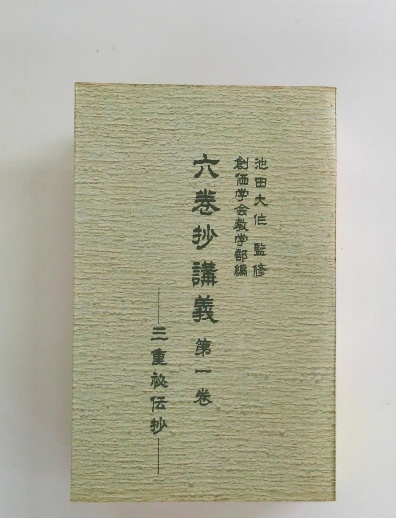 池田大作 監修
創価学会教学部編
六巻抄講義 第一巻
―三重祕伝抄―